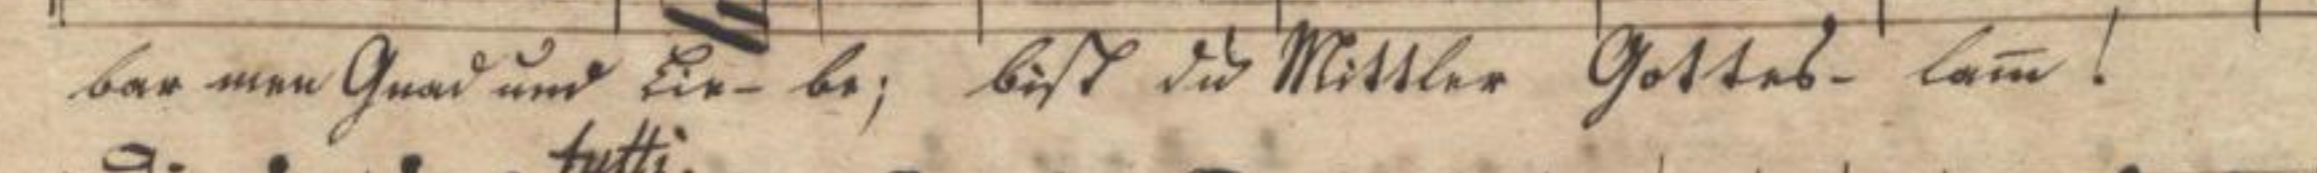 bar men Gnad und Lie- be; bist du Mittler Gottes- lam̅!
tutti